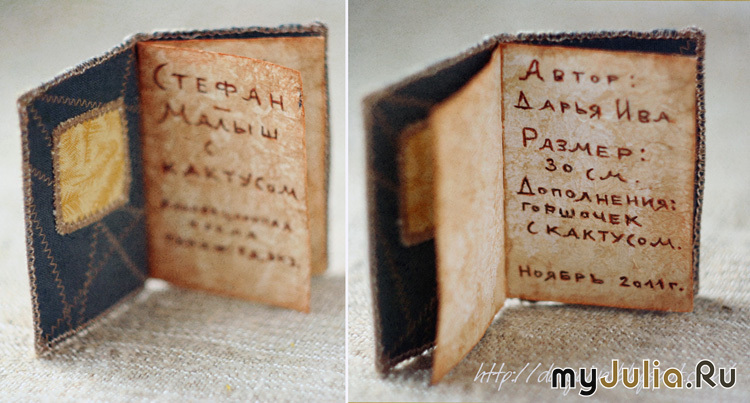 СТЕФАН
—
МАЛЫШ
С
КАКТУСОМ
АВТОР:
ДАРЬЯ ИВА
РАЗМЕР:
30 СМ.
ДОПОЛНЕНИЯ:
ГОРШОЧЕК
С КАКТУСОМ.
НОЯБРЬ 2011г.
myJulia.Ru